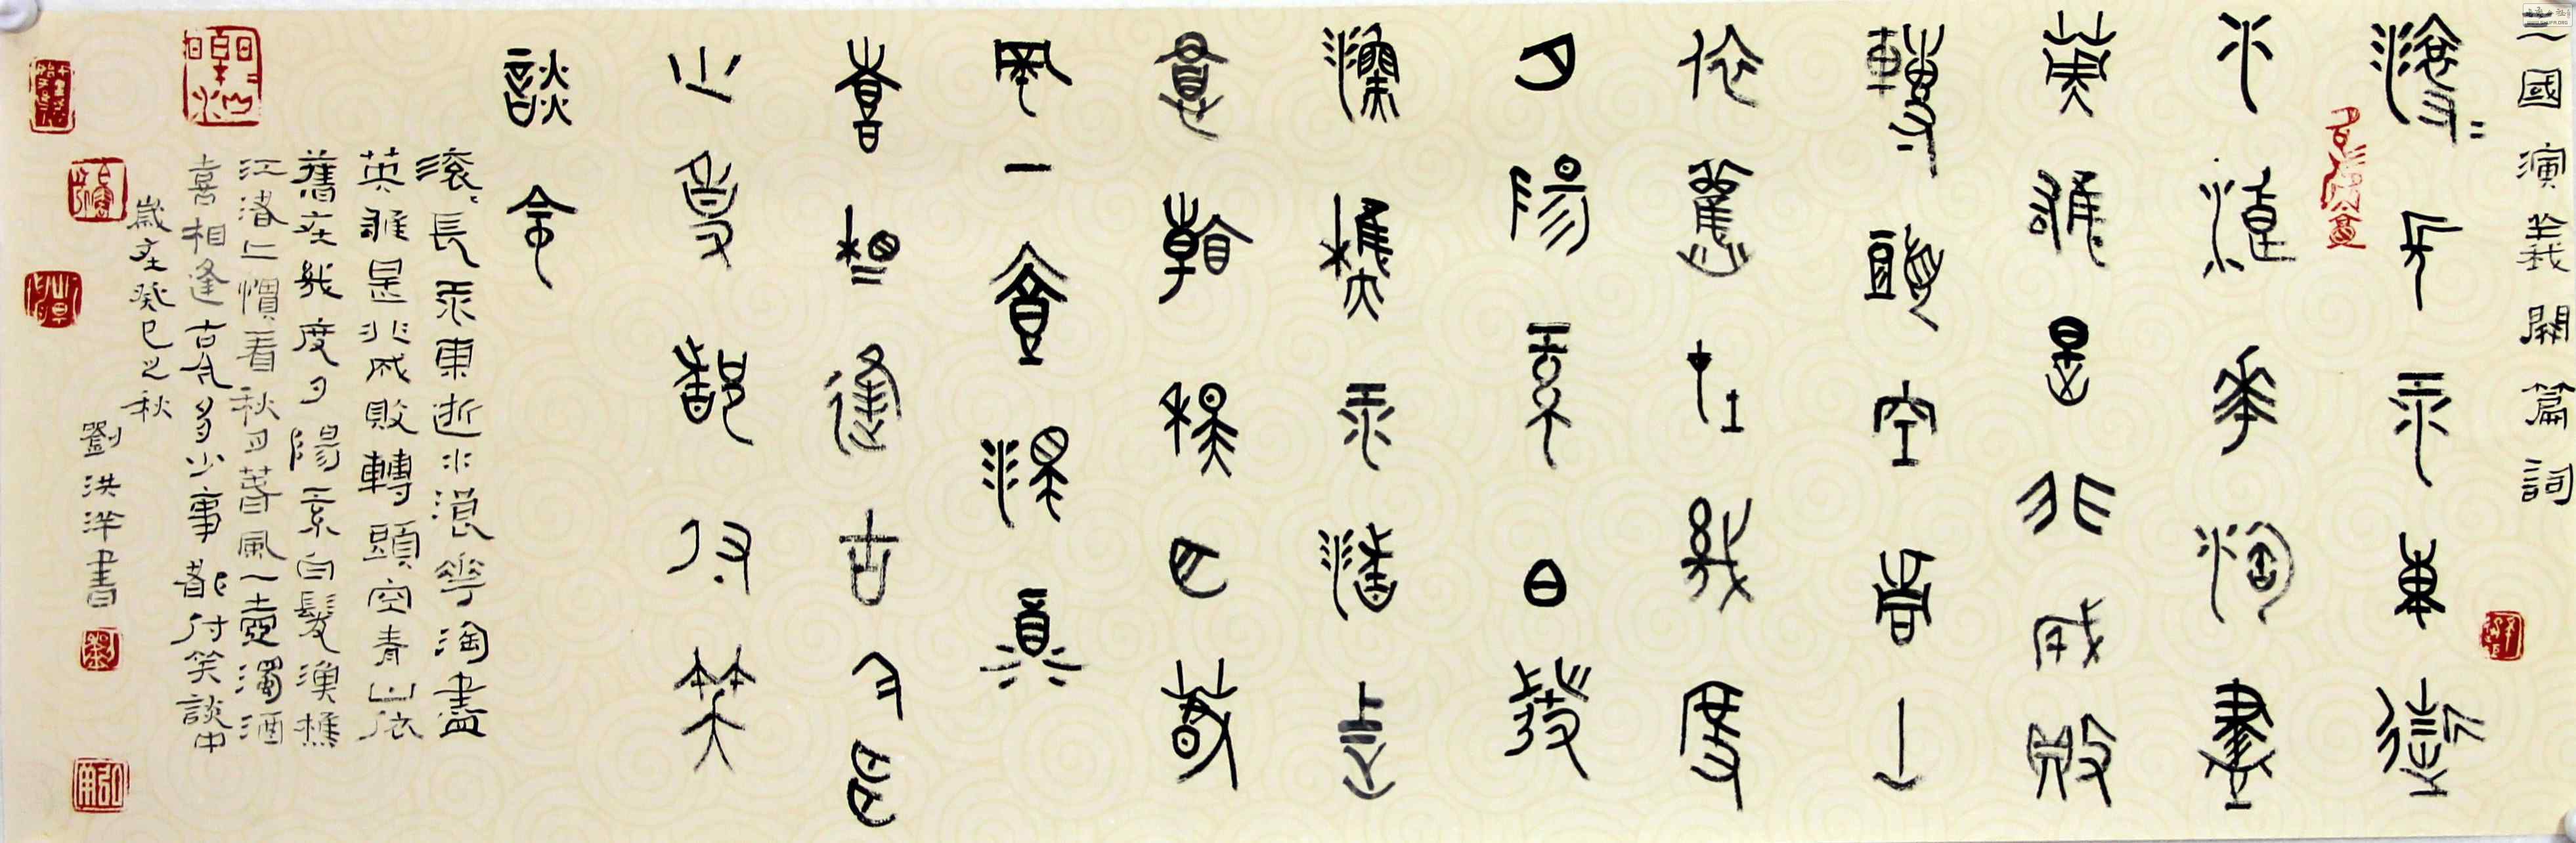 三國演義開篇詞
滾〻長江東逝
水浪花淘盡
英雄是非成敗
轉頭空青山
依舊在幾度
夕陽紅白髮
漁樵江渚上
慣看秋月春
風一壺濁酒
喜相逢古今多
少事都付笑
談中
滾〻長江東逝水浪花淘盡
英雄是非成敗轉頭空青山依
舊在幾度夕陽紅白髮漁樵
江渚上慣看秋月春風一壺濁酒
喜相逢古今多少事都付笑談中
歲在癸巳之秋
劉洪洋書